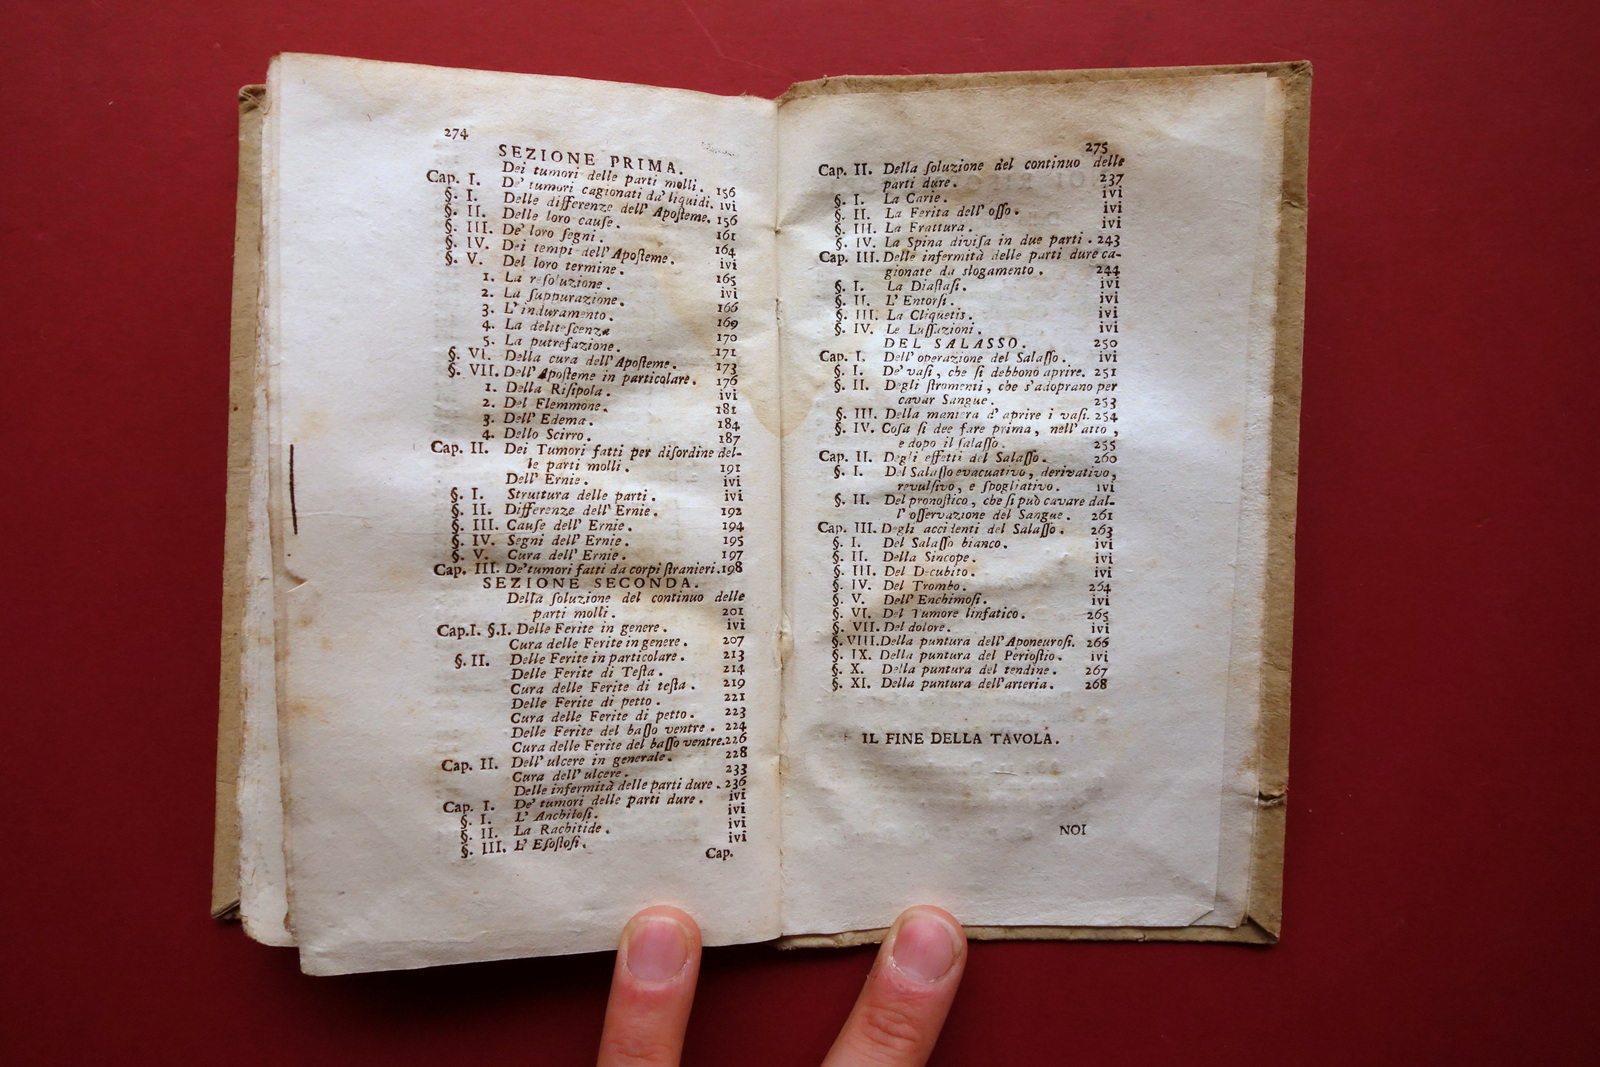 274
SEZIONE PRIMA.
Dei tumori delle parti molli. 156
Cap. I. De' tumori cagionati da' liquidi. ivi
§. I. Delle differenze dell' Aposteme. 156
§. II. Delle loro cause. 161
§. III. De' loro segni. 164
§. IV. Dei tempi dell' Aposteme. ivi
§. V. Del loro termine. 165
1. La resoluzione. ivi
2. La suppurazione. 166
3. L' induramento. 169
4. La delitescenza 170
5. La putrefazione. 171
§. VI. Della cura dell' Aposteme. 173
§. VII. Dell' Aposteme in particolare. 176
1. Della Risipola. ivi
2. Del Flemmone. 181
3. Dell' Edema. 184
4. Dello Scirro. 187
Cap. II. Dei Tumori fatti per disordine del-
le parti molli. 191
Dell' Ernie. ivi
§. I. Struttura delle parti. ivi
§. II. Differenze dell' Ernie. 192
§. III. Cause dell' Ernie. 194
§. IV. Segni dell' Ernie. 195
§. V. Cura dell' Ernie. 197
Cap. III. De' tumori fatti da corpi stranieri. 198
SEZIONE SECONDA.
Della soluzione del continuo delle
parti molli. 201
Cap. I. §. I. Delle Ferite in genere. ivi
Cura delle Ferite in genere. 207
§. II. Delle Ferite in particolare. 213
Delle Ferite di Testa. 214
Cura delle Ferite di testa. 219
Delle Ferite di petto. 221
Cura delle Ferite di petto. 223
Delle Ferite del basso ventre. 224
Cura delle Ferite del basso ventre. 226
Cap. II. Dell' ulcere in generale. 228
Cura dell' ulcere. 233
Delle infermità delle parti dure. 236
Cap. I. De' tumori delle parti dure. ivi
§. I. L' Anchilosi. ivi
§. II. La Rachitide. ivi
§. III. L' Esostosi. ivi
Cap.
275
Cap. II. Della soluzione del continuo delle
parti dure. 237
§. I. La Carie. ivi
§. II. La Ferita dell' osso. ivi
§. III. La Frattura. ivi
§. IV. La Spina divisa in due parti. 243
Cap. III. Delle infermità delle parti dure ca-
gionate da slogamento. 244
§. I. La Diastasi. ivi
§. II. L' Entorsi. ivi
§. III. La Cliquetis. ivi
§. IV. Le Lussazioni. ivi
DEL SALASSO. 250
Cap. I. Dell' operazione del Salasso. ivi
§. I. De' vasi, che si debbono aprire. 251
§. II. Degli stromenti, che s' adoprano per
cavar Sangue. 253
§. III. Della maniera d' aprire i vasi. 254
§. IV. Cosa si dee fare prima, nell' atto,
e dopo il salasso. 255
Cap. II. Degli effetti del Salasso. 260
§. I. Del Salasso evacuativo, derivativo,
revulsivo, e spogliativo. ivi
§. II. Del pronostico, che si può cavare dal-
l' osservazione del Sangue. 261
Cap. III. Degli accidenti del Salasso. 263
§. I. Del Salasso bianco. ivi
§. II. Della Sincope. ivi
§. III. Del Decubito. ivi
§. IV. Del Trombo. 264
§. V. Dell' Enchimosi. ivi
§. VI. Del Tumore linfatico. 265
§. VII. Del dolore. ivi
§. VIII. Della puntura dell' Aponeurosi. 266
§. IX. Della puntura del Periostio. ivi
§. X. Della puntura del tendine. 267
§. XI. Della puntura dell' arteria. 268
IL FINE DELLA TAVOLA.
NOI